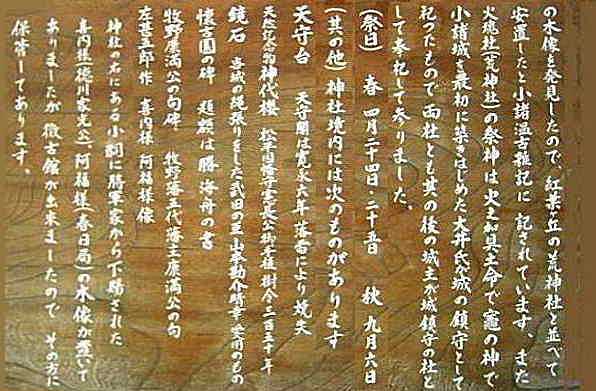 の木像を発見したので、紅葉ヶ丘の荒神社と並べて
安置したと小諸温古雑記に記されています。また
火魂社(荒神社)の祭神は火之加具土命で竈の神で
小諸城を最初に築きはじめた大井氏が城の鎮守として
祀ったもので両社とも其の後の城主が城鎮守の社と
して奉祀して参りました。
(祭日) 春 四月二十四日・二十五日 秋 九月六日
(其の他) 神社境内には次のものがあります
天守台 天守閣は寛永六年落雷により焼失
天然記念物神代桜 松平因幡守忠憲公御手植 樹令三百五十年
鏡石 当城の縄張りをした武田の臣山本勘介晴幸愛用のもの
懐古園の碑 題額は勝海舟の書
牧野康満公の句碑 牧野藩五代藩主康満公の句
左甚五郎作 喜内様 阿福様像
神社の右にある小祠に将軍家から下賜された
喜内様(徳川家光公)、阿福様(春日局)の木像が置いて
ありましたが徴古館が出来ましたので その方に
保管してあります。